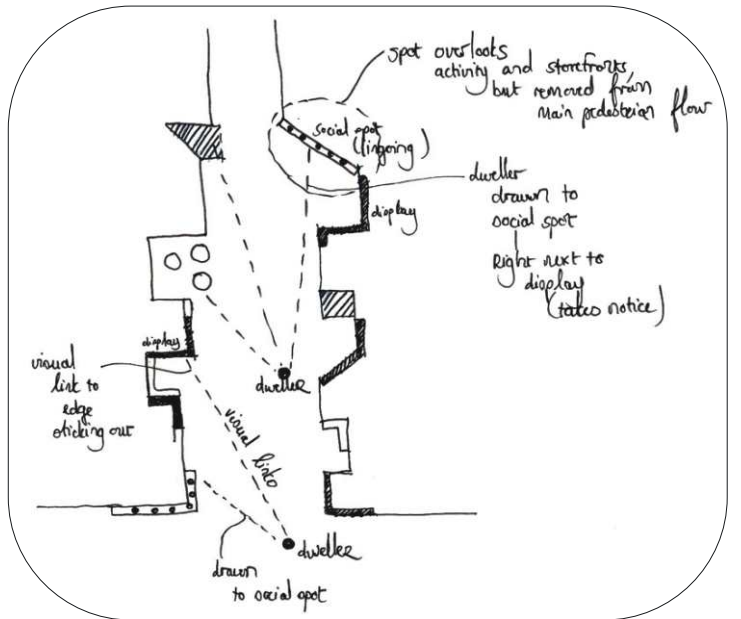 spot overlooks
activity and storefronts,
but removed from
main pedesterian flow
social spot
(lingering)
dweller
drawn to
social spot
Right next to
display
(takes notice)
display
display
visual
link to
edge
sticking out
dweller
visual links
dweller
drawn
to social spot